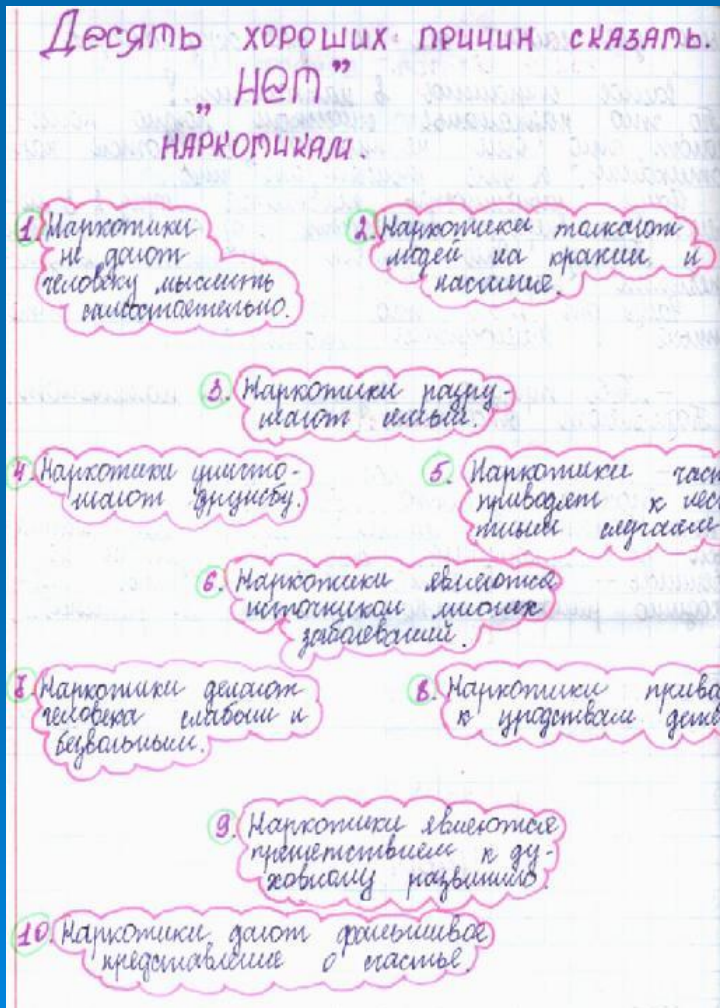 Десять хороших причин сказать.
„Нет”
наркотикам.
1. Наркотики
не дают
человеку мыслить
самостоятельно.
2. Наркотики толкают
людей на кражи и
насилие.
3. Наркотики разру-
шают семьи.
4. Наркотики уничто-
жают дружбу.
5. Наркотики част
приводят к нес
тным случаям
6. Наркотики являются
источником многих
заболеваний.
7. Наркотики делают
человека слабым и
безвольным.
8. Наркотики приво
к уродствам дете
9. Наркотики являются
препятствием к ду-
ховному развитию.
10. Наркотики дают фальшивое
представление о счастье.